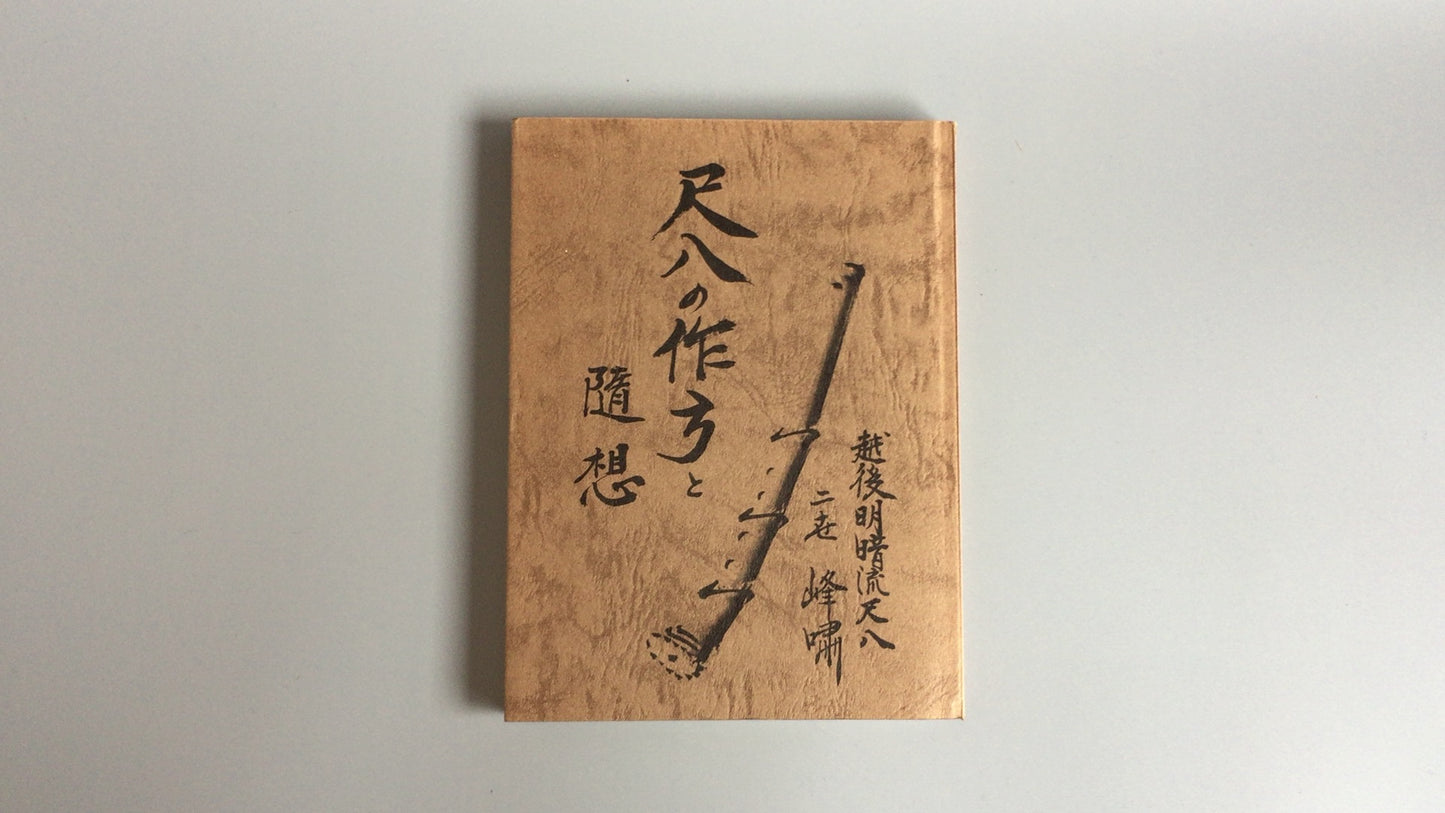 尺八の作方と
隨想
越後明暗流尺八
二世 峰嘯